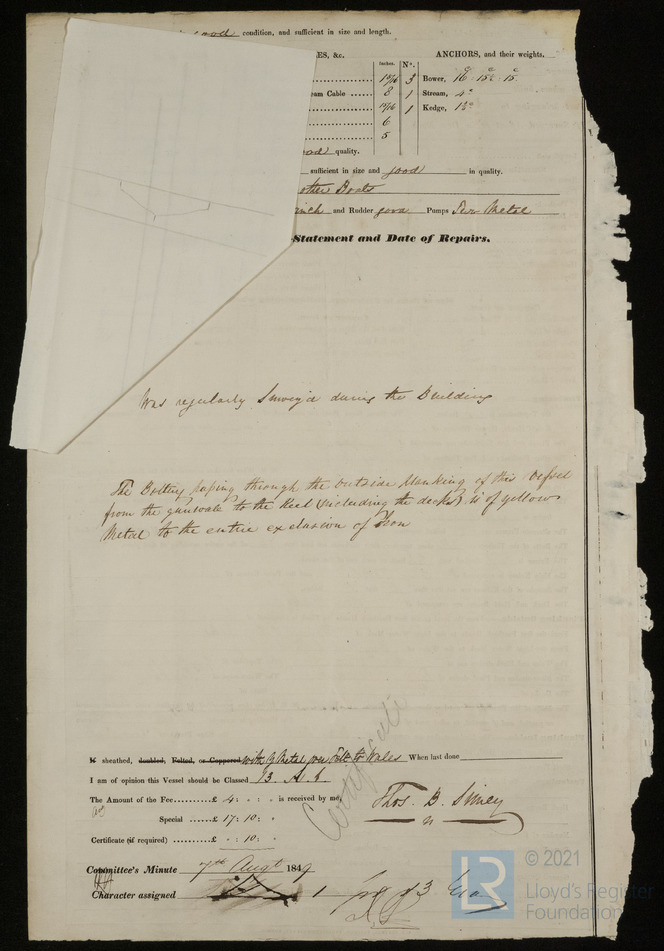 good condition, and sufficient in size and length.
ES, &c. ANCHORS, and their weights.
Inches. No.
10/16 3 Bower, 16 . 15 . 15
eam Cable ...... 8 1 Stream, 4
1 Kedge,
6
5
ood quality.
sufficient in size and good in quality.
other Boats
inch and Rudder good Pumps Metal
Statement and Date of Repairs.
Was regularly Survey'd during the Building
The Bolting passing through the outside Planking of this Vessel
from the gunwale to the Keel (including the decks) is of yellow
Metal to the entire exclusion of Iron
If sheathed, doubled, Felted, or Coppered with Y Metal over Felt to Wales When last done
I am of opinion this Vessel should be Classed 13 A. 1.
The Amount of the Fee.........£ 4 : - : - is received by me,
Special ......£ 17 : 10 : -
Certificate (if required) ......£ - : 10 : -
Certificate
Thos. B. Simey
Committee's Minute 7th Augt 1849
Character assigned 1
© 2021
LR
Lloyd's Register
Foundation